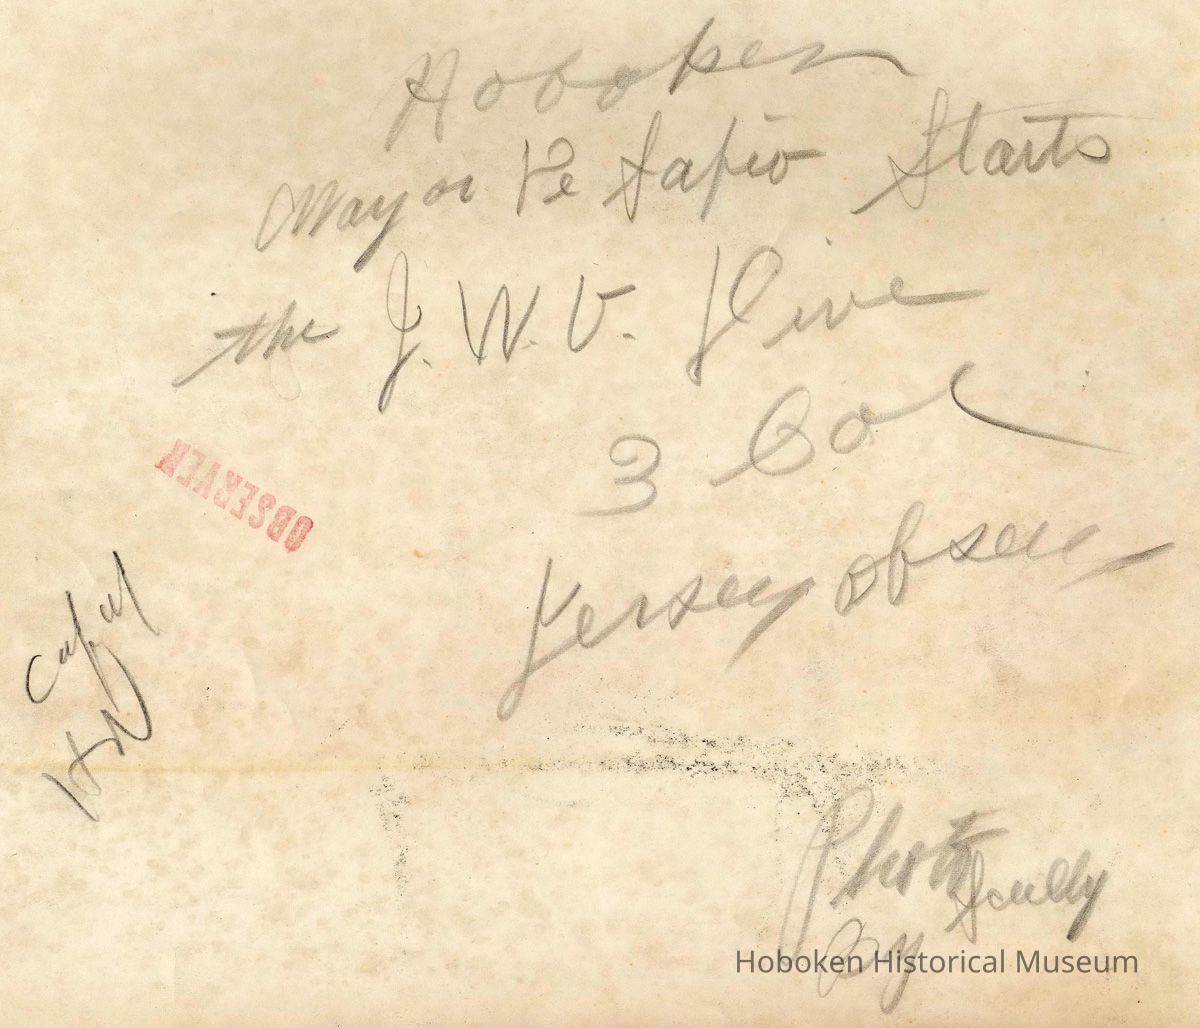 Hoboken
Mayor De Sapio Starts
the J.W.V. Dive
3 Col
Jersey Obser
OBSERVER
Photo
Scully
By
Hoboken Historical Museum